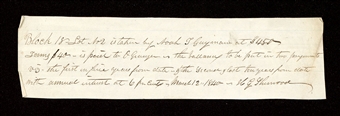 Block 18 Lot No 2 is taken by Noah T. Guymon at $450
$40 is paid to the balance to be put in two payments
the first in five years from date the second ten years from date
with annual interest at 6 pr Cent March 12 1840 H G Sherwood